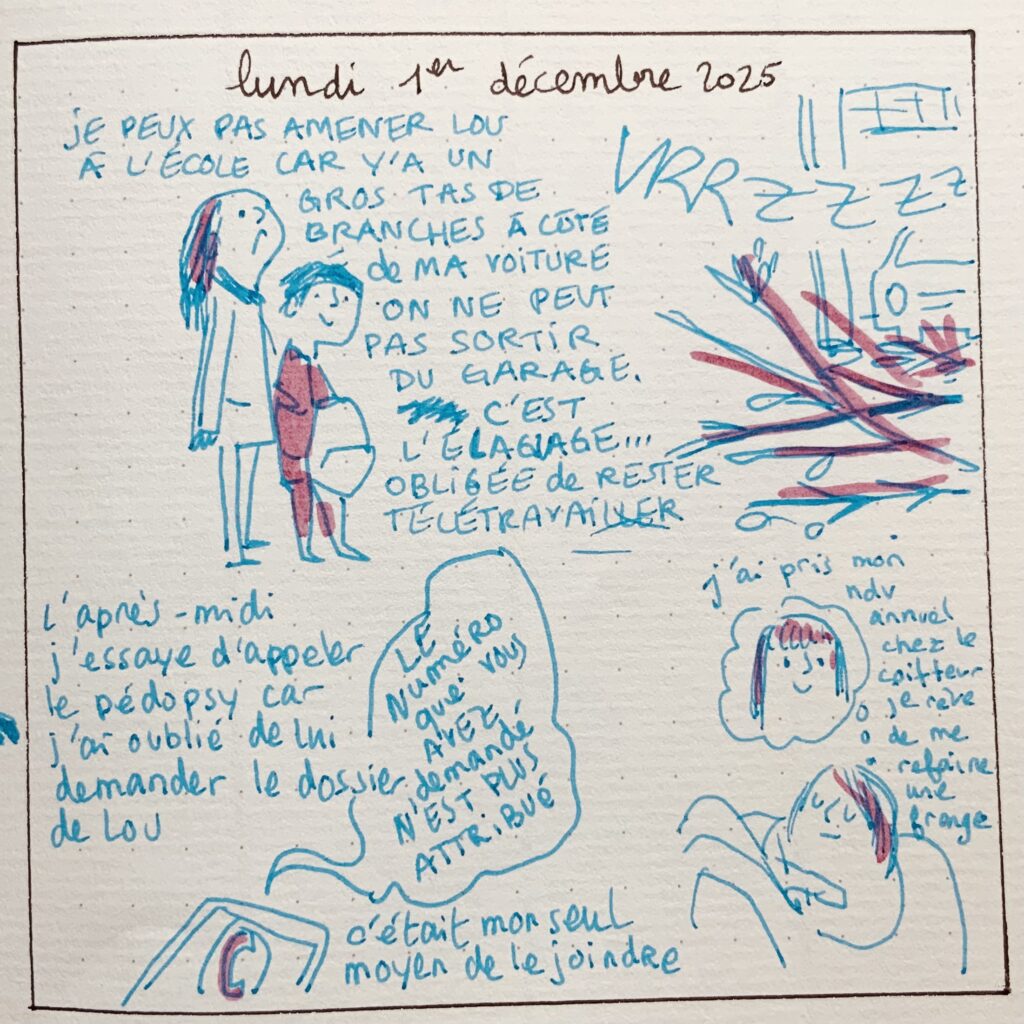 lundi 1er décembre 2025
JE PEUX PAS AMENER LOU
À L'ÉCOLE CAR Y'A UN
GROS TAS DE
BRANCHES À CÔTÉ
de MA VOITURE
ON NE PEUT
PAS SORTIR
DU GARAGE.
C'EST
L'ÉLAGAGE...
OBLIGÉE de RESTER
TÉLÉTRAVAILLER
VRRZZZZ
L'après-midi
j'essaye d'appeler
le pédopsy car
j'ai oublié de lui
demander le dossier
de LOU
LE
NUMÉRO
que vous
AVEZ
demandé
N'EST PLUS
ATTRIBUÉ
c'était mon seul
moyen de le joindre
j'ai pris mon
rdv
annuel
chez le
coiffeur
je rêve
de me
refaire
une
frange